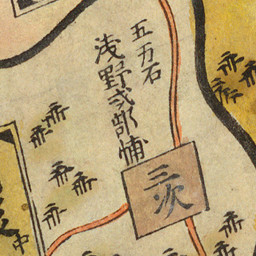 五万石
浅野式部輔
三次
中